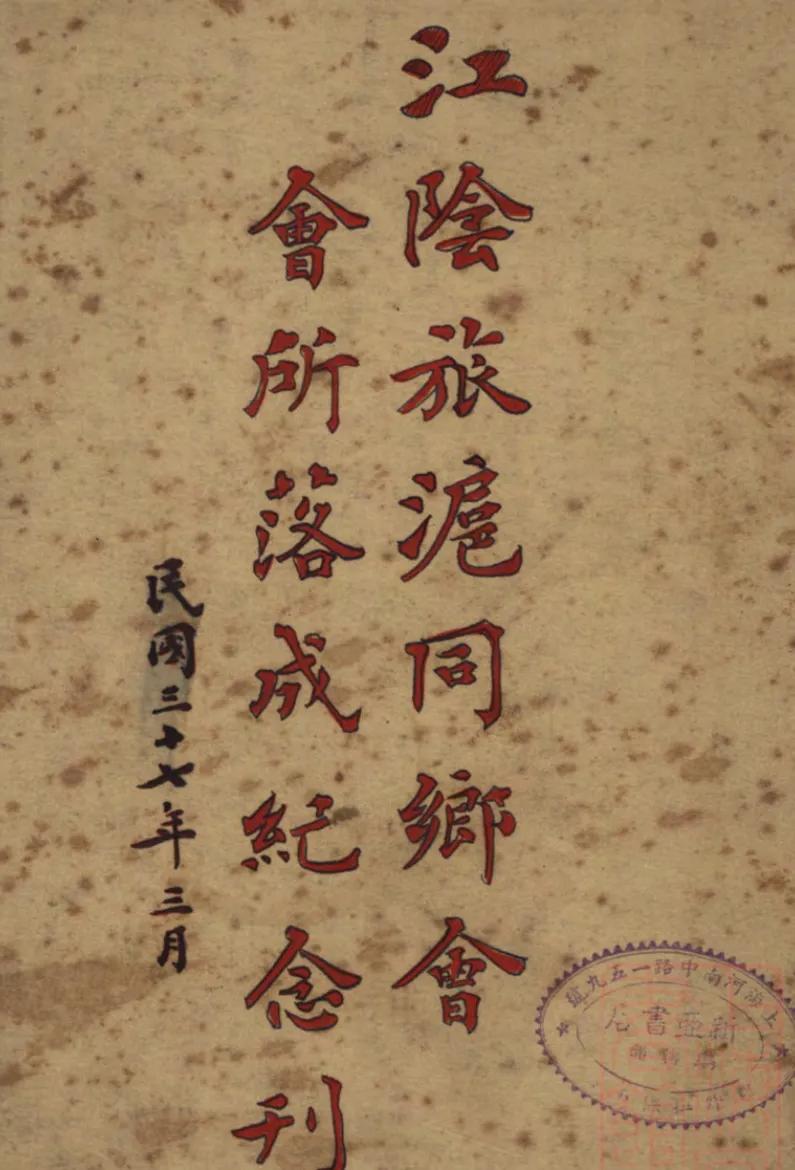 江陰旅滬同鄉會
會所落成紀念刊
民國三十七年三月
上海河南中路一五九號
新亞書店